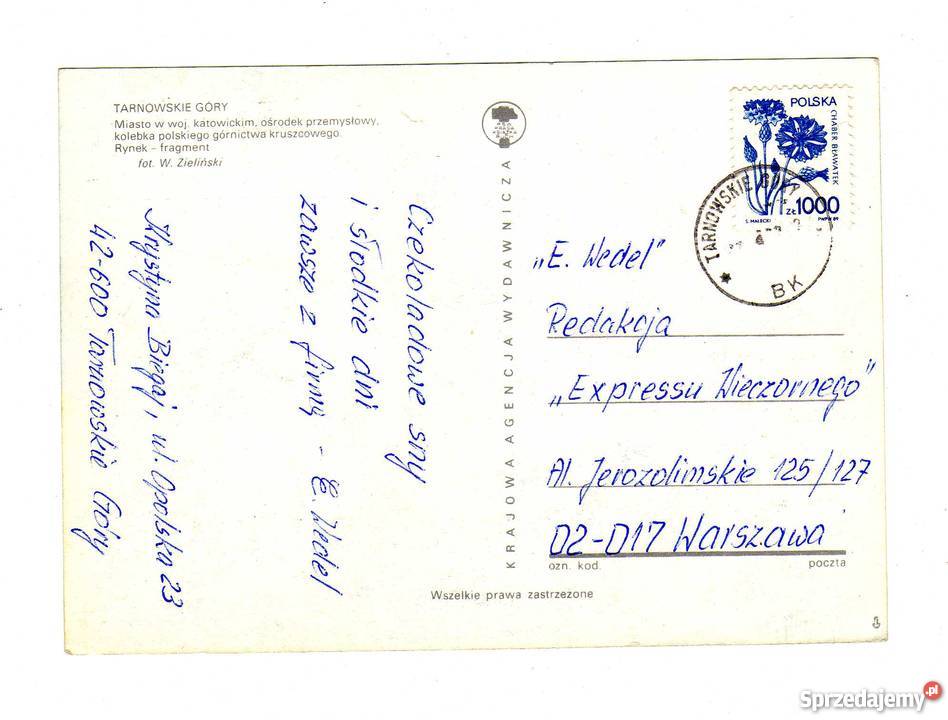 TARNOWSKIE GÓRY
Miasto w woj. katowickim, ośrodek przemysłowy,
kolebka polskiego górnictwa kruszcowego.
Rynek – fragment
fot. W. Zieliński
Czekoladowe sny
i słodkie dni
zawsze z firmą – E. Wedel
Krystyna ul. Opolska 23
42-600 Tarnowskie Góry
KRAJOWA AGENCJA WYDAWNICZA
POLSKA
CHABER BŁAWATEK
ZŁ 1000
S. MAŁECKI
PWPW 89
TARNOWSKIE GÓRY
BK
„E. Wedel"
Redakcja
„Expressu Wieczornego"
Al. Jerozolimskie 125/127
02-017 Warszawa
ozn. kod. poczta
Wszelkie prawa zastrzeżone
Sprzedajemy.pl